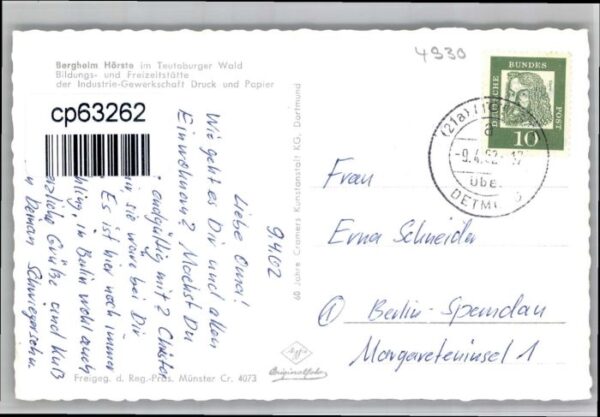 Bergheim Hörste im Teutoburger Wald
Bildungs- und Freizeitstätte
der Industrie-Gewerkschaft Druck und Papier
cp63262
4930
DEUTSCHE BUNDESPOST
10
(21a)
a
-9.4.62.-17
über
DETMOLD
9.4.62
Liebe Oma!
Wie geht es Dir und allen
Einwohnern? Machst Du
endgültig mit 2
sie waren bei Dir
Es ist hier noch immer
in Berlin wohl auch
Grüße und Kuß
Deinem Schwiegersohn
60 Jahre Cramers Kunstanstalt KG, Dortmund
Frau
Erna Schneider
Berlin-Spandau
Margareteninsel 1
Agfa
Originalfoto
Freigeg. d. Reg.-Präs. Münster Cr. 4073